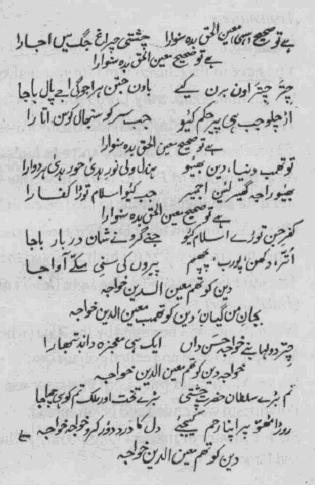 ہے تو صحیح اسمی معین الحق بدہ سنوارا چشتی چراغ جگ میں اجارا
ہے تو صحیح معین الحق بدہ سنوارا
چتر چتر اون برن کے باون جتن پر اجوگی اجے پال باجا
از چلو جب ہی پیر حکم کنیو جب سر کو سنبھال کوٹن اتارا
ہے تو صحیح معین الحق بدہ سنوارا
تو تھمب دنیا، دین بھیو ہندل ولی نور ہدیٰ حور ہدیٰ پر دوارا
بھیو راجہ گھیر لئین اجمیر جب کنیو اسلام توڑا کفارا
ہے تو صحیح معین الحق بدہ سنوارا
کفر جن توڑے اسلام کنیو جنے گروئے شان دربار باجا
اتر، دکھن، پورب، پچھم پیروں کی سنی سکے آواجا
دین کو تھم معین الدین خواجہ
بجان من گیان دین کو تھمب معین الدین خواجہ
چتر دولہا بنے خواجہ حسن داں ایک ہی معجزہ داند تمھارا
خواجہ دین کو تھم معین الدین خواجہ
تم بڑے سلطان حضرت چشتی بڑے تخت اور ملک تم کو ہی چھاجا
روز اٹھو پیر اپنا رحم کیجئے دل کا درد دور کرو خواجہ خواجہ
دین کو تھم معین الدین خواجہ